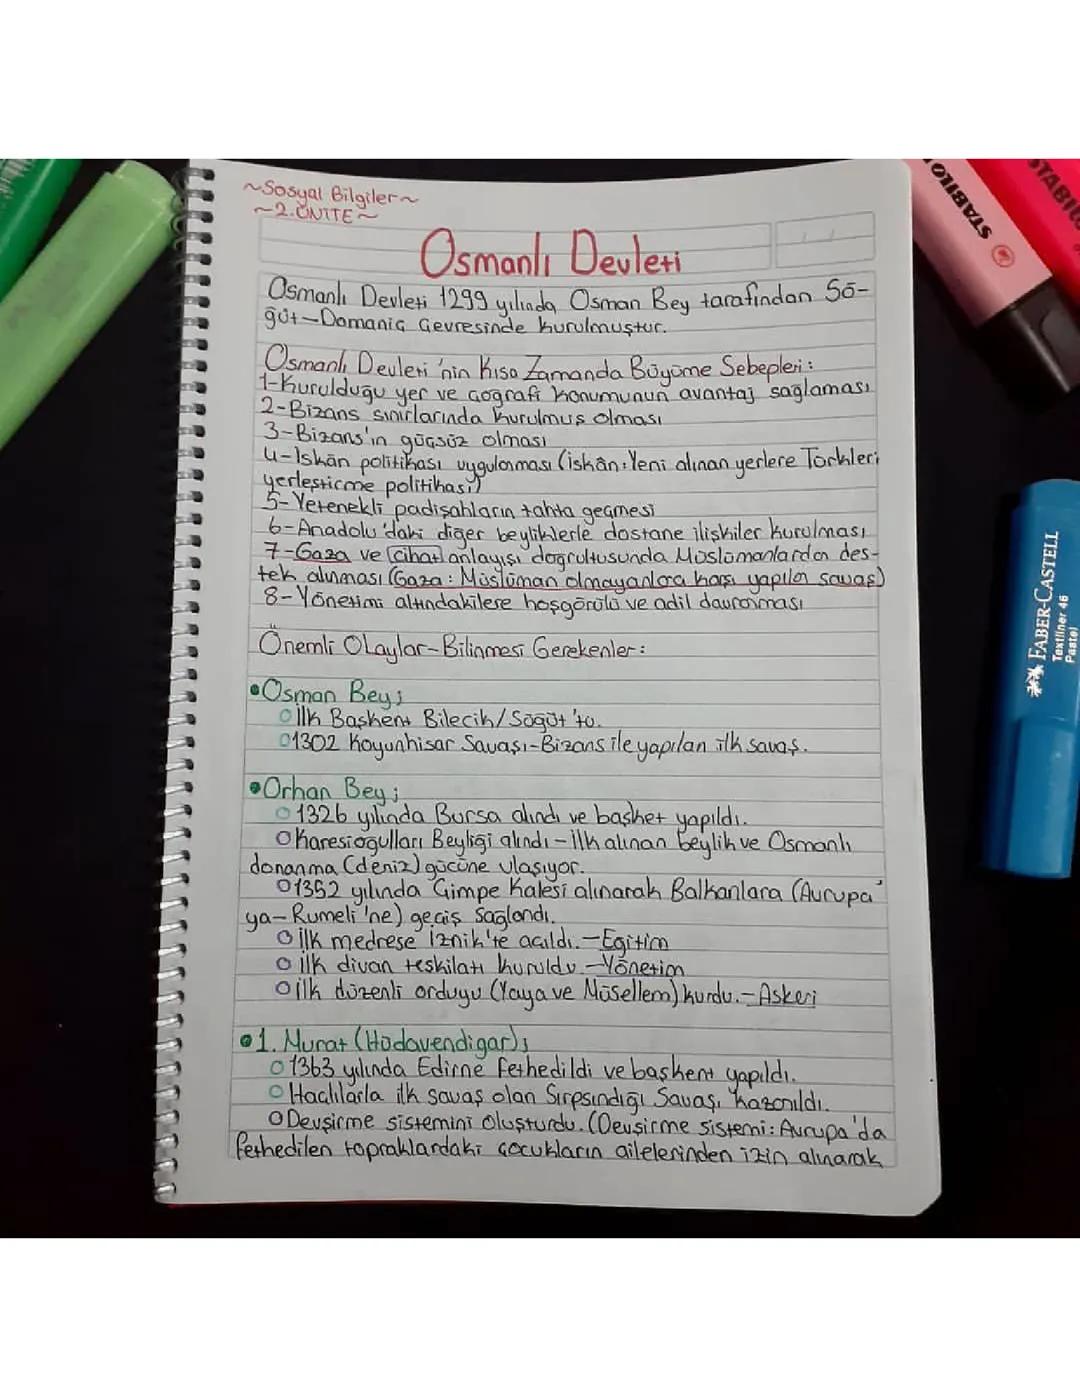 ~Sosyal Bilgiler~
~2.ÜNİTE~
Osmanlı Devleti
Osmanlı Devleti 1299 yılında Osman Bey tarafından Sö-
ğüt-Domaniç Çevresinde kurulmuştur.
Osmanlı Devleti'nin Kısa Zamanda Büyüme Sebepleri:
1-Kurulduğu yer ve coğrafi konumunun avantaj sağlaması
2-Bizans sınırlarında kurulmuş olması
3-Bizans'ın güçsüz olması
4-İskân politikası uygulanması (iskân: Yeni alınan yerlere Türkleri
yerleştirme politikası)
5-Yetenekli padişahların tahta geçmesi
6-Anadolu'daki diğer beyliklerle dostane ilişkiler kurulması
7-Gaza ve cihat anlayışı doğrultusunda Müslümanlardan des-
tek alınması (Gaza: Müslüman olmayanlara karşı yapılan savaş)
8-Yönetimi altındakilere hoşgörülü ve adil davranması
Önemli Olaylar-Bilinmesi Gerekenler:
Osman Bey;
İlk Başkent Bilecik/Söğüt'tü.
1302 Koyunhisar Savaşı-Bizans ile yapılan ilk savaş.
Orhan Bey;
1326 yılında Bursa alındı ve başket yapıldı.
Karesioğulları Beyliği alındı-İlk alınan beylik ve Osmanlı
donanma (deniz) gücüne ulaşıyor.
1352 yılında Çimpe Kalesi alınarak Balkanlara (Avrupa'
ya-Rumeli'ne) geçiş sağlandı.
İlk medrese İznik'te açıldı.-Eğitim
İlk divan teşkilatı kuruldu.-Yönetim
İlk düzenli orduyu (Yaya ve Müsellem) kurdu.-Askeri
1. Murat (Hüdavendigar);
1363 yılında Edirne fethedildi ve başkent yapıldı.
Haçlılarla ilk savaş olan Sırpsındığı Savaşı kazanıldı.
Devşirme sistemini oluşturdu. (Devşirme sistemi: Avrupa'da
fethedilen topraklardaki çocukların ailelerinden izin alınarak
STABILO
STABILO
FABER-CASTELL
Textliner 46
Pastel